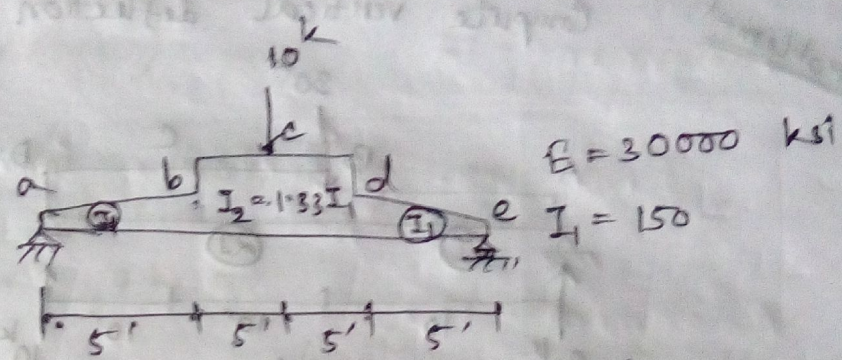 10k
c
a b d e
I₂=1.33I₁
I₁
I₁
E = 30000 ksi
I₁ = 150
5' 5' 5' 5'